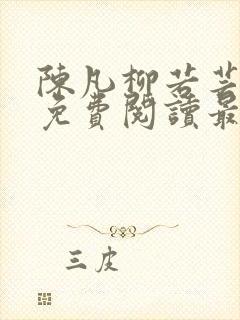 陳凡柳若芸
免費閱讀最
三皮